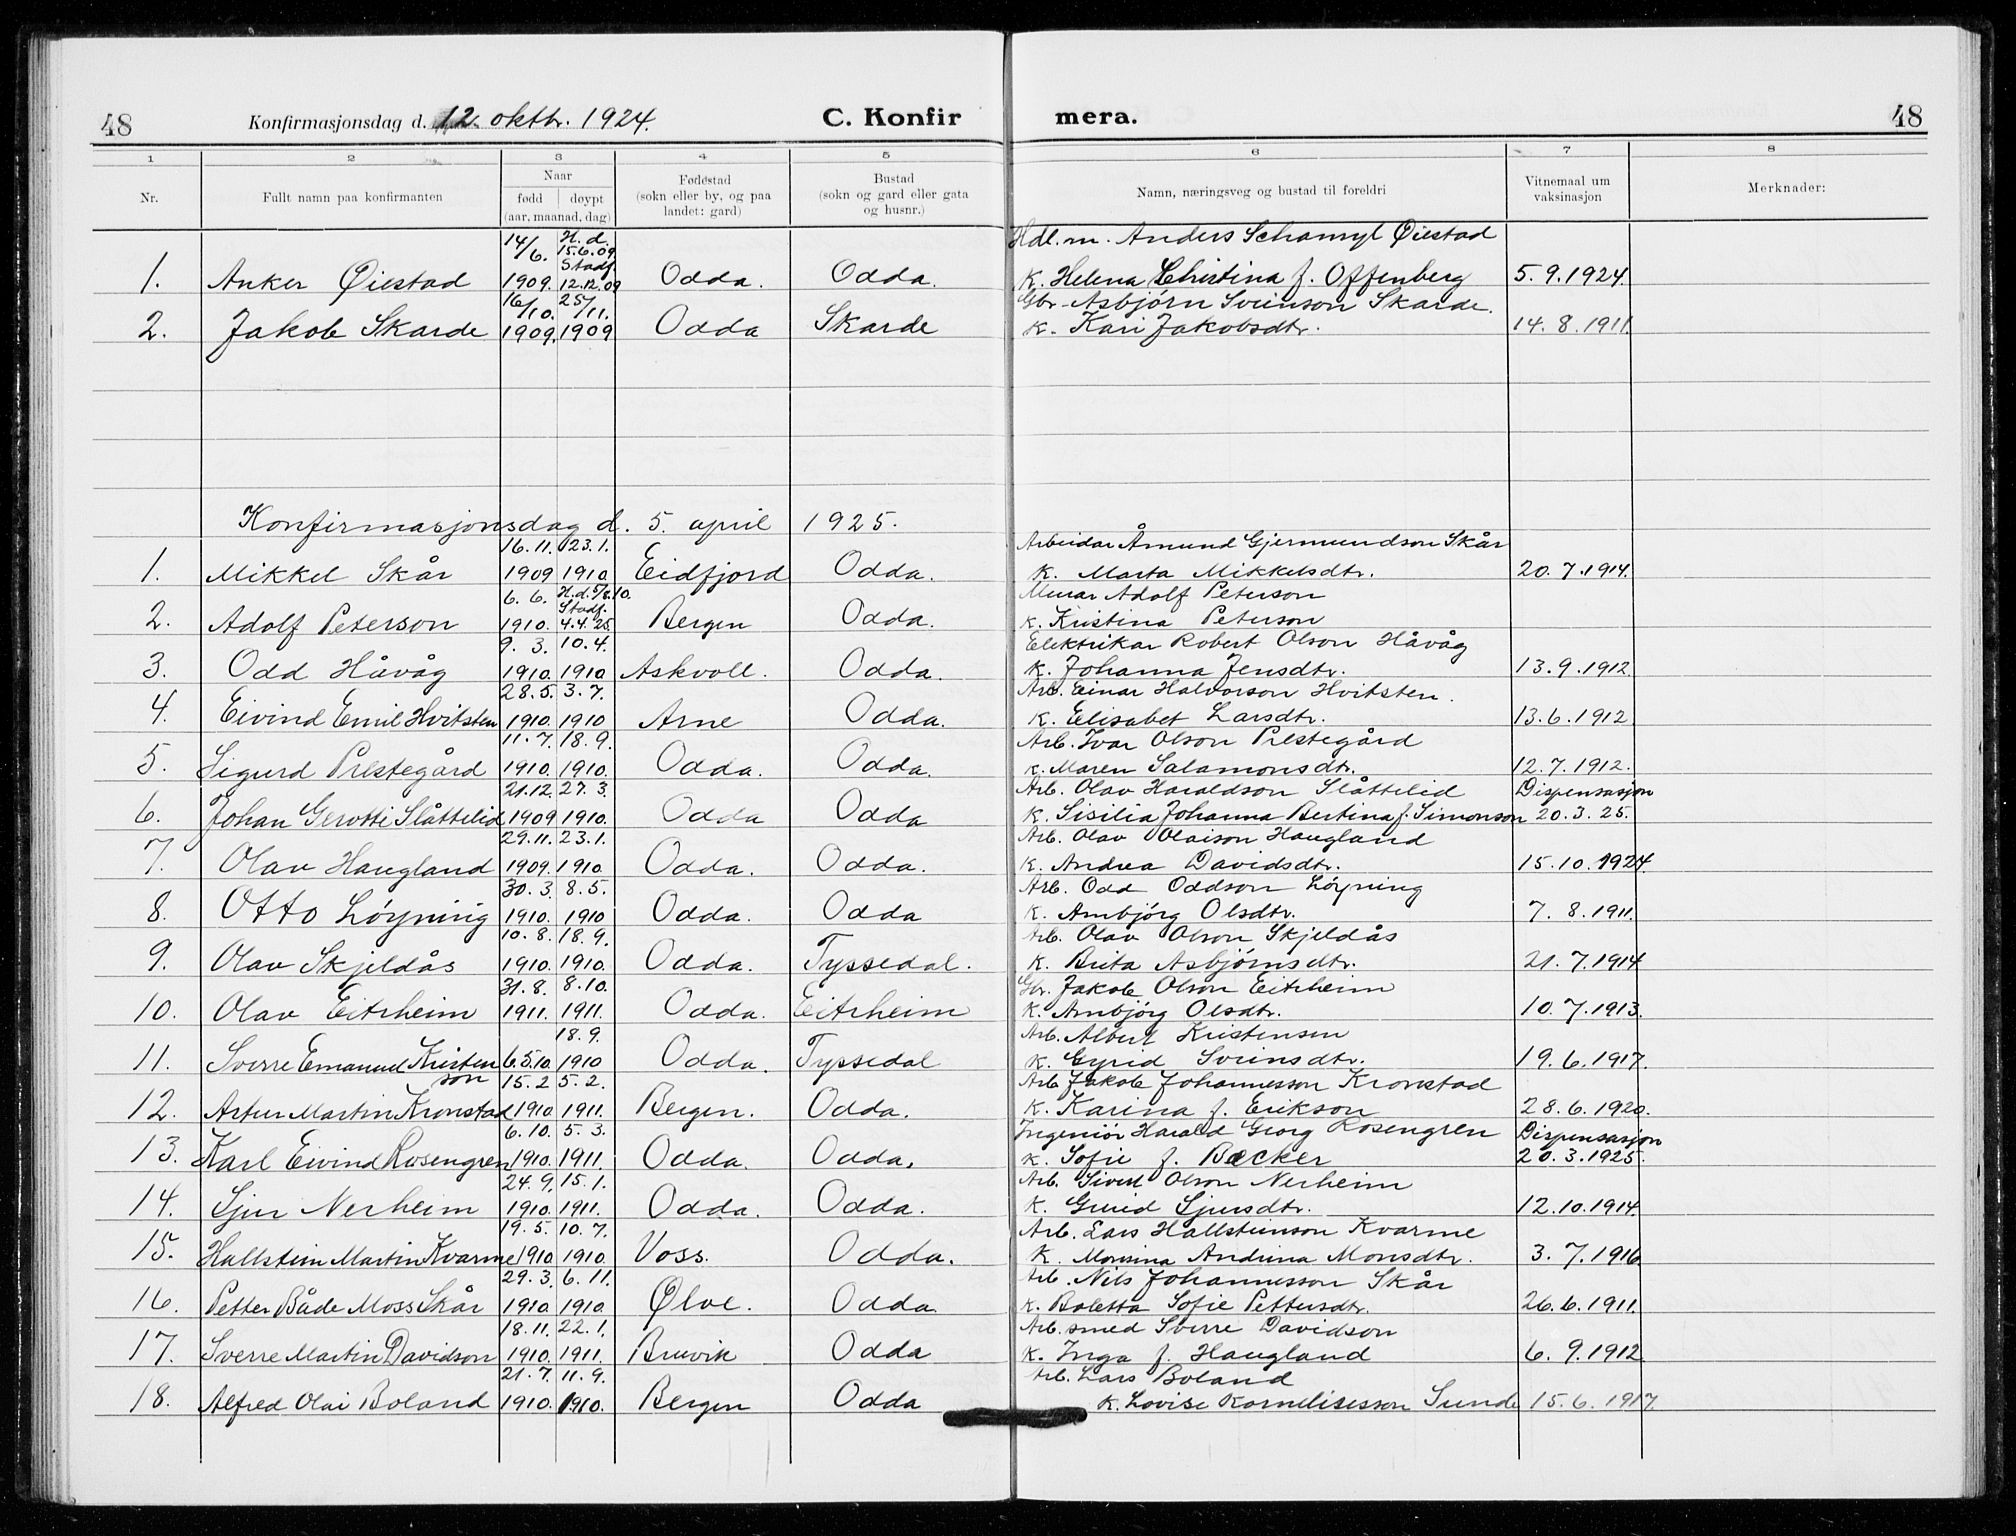 48 Konfirmasjonsdag d. 12. oktbr. 1924. C. Konfir mera. 48
1 2 3 4 5 6 7 8
Nr. Fullt namn paa konfirmanten Naar født døypt (aar, maanad, dag) Fødestad (sokn eller by, og paa landet: gard) Bustad (sokn og gard eller gata og husnr.) Namn, næringsveg og bustad til foreldri Vitnemaal um vaksinasjon Merknader:
14/6. H. d. 15.6.09 Stadf. Hdl.m. Anders Schamyl Øiestad
1. Anker Øiestad 1909. 12.12.09 Odda. Odda. K. Helena Christina f. Offenberg 5.9.1924.
16/10. 25/11. Gbr. Asbjørn Sveinson Skarde.
2. Jakob Skarde 1909. 1909 Odda Skarde K. Kari Jakobsdtr. 14.8.1911.
Konfirmasjonsdag d. 5. april 1925.
16.11. 23.1. Arbeidar Åmund Gjermundson Skår
1. Mikkel Skår 1909 1910. Eidfjord Odda. K. Marta Mikkelsdtr. 20.7.1914.
6.6. H.d. 7/8.10. Stadf. Minar Adolf Peterson
2. Adolf Peterson 1910. 4.4.25. Bergen Odda. K. Kristina Peterson
9.3. 10.4. Elektrikar Robert Olson Håvåg
3. Odd Håvåg 1910. 1910 Askvoll. Odda. K. Johanna Jensdtr. 13.9.1912.
28.5. 3.7. Arb. Einar Halvorson Hvitsten.
4. Eivind Emil Hvitsten 1910. 1910 Arne Odda. K. Elisabet Larsdtr. 13.6.1912
11.7. 18.9. Arb. Ivar Olson Prestegård
5. Sigurd Prestegård 1910. 1910. Odda. Odda. K. Maren Salamonsdtr. 12.7.1912.
21.12. 27.3. Arb. Olav Haraldson Slåttelid Dispensasjon
6. Johan Gerotti Slåttelid 1909 1910. Odda Odda K. Sisilia Johanna Bertina f. Simonson 20.3.25.
29.11. 23.1. Arb. Olav Olaison Haugland
7. Olav Haugland 1909. 1910. Odda. Odda. K. Andrea Davidsdtr. 15.10.1924.
30.3. 8.5. Arb. Odd Oddson Løyning
8. Otto Løyning 1910. 1910 Odda. Odda K. Ambjørg Olsdtr. 7.8.1911.
10.8. 18.9. Arb. Olav Olson Skjeldås
9. Olav Skjeldås 1910. 1910. Odda. Tyssedal. K. Brita Asbjørnsdtr. 21.7.1914
31.8. 8.10. Gbr. Jakob Olson Eitrheim
10. Olav Eitrheim 1911. 1911. Odda. Eitrheim K. Ambjørg Olsdtr. 10.7.1913.
18.9. Arb. Albert Kristensen
11. Sverre Emanuel Kristenson 6.5.10. 1910 Odda. Tyssedal K. Gyrid Sveinsdtr. 19.6.1917.
15.2 5.2. Arb. Jakob Johannesson Kronstad
12. Artur Martin Kronstad 1910. 1911. Bergen. Odda. K. Karina f. Erikson 28.6.1920.
6.10. 5.3. Ingeniør Harald Georg Rosengren Dispensasjon
13. Karl Eivind Rosengren 1910. 1911. Odda. Odda. K. Sofie f. Becker 20.3.1925.
24.9. 15.1. Arb. Sivert Olson Nerheim
14. Sjur Nerheim 1910. 1911. Odda. Odda. K. Gurid Sjursdtr. 12.10.1914.
19.5. 10.7. Arb. Lars Hallsteinson Kvarme
15. Hallstein Martin Kvarme 1910. 1910. Voss. Odda. K. Monsina Andrina Monsdtr. 3.7.1916.
29.3. 6.11. Arb. Nils Johannesson Skår
16. Petter Både Moss Skår 1910. 1910. Ølve. Odda. K. Boletta Sofie Pettersdtr. 26.6.1911.
18.11. 22.1. Arb. smed Sverre Davidson
17. Sverre Martin Davidson 1910. 1911. Bruvik Odda K. Inga f. Haugland 6.9.1912
21.7. 11.9. Arb. Lars Boland
18. Alfred Olai Boland 1910. 1910. Bergen Odda K. Lovise Kornelisesson Sunde 15.6.1917.